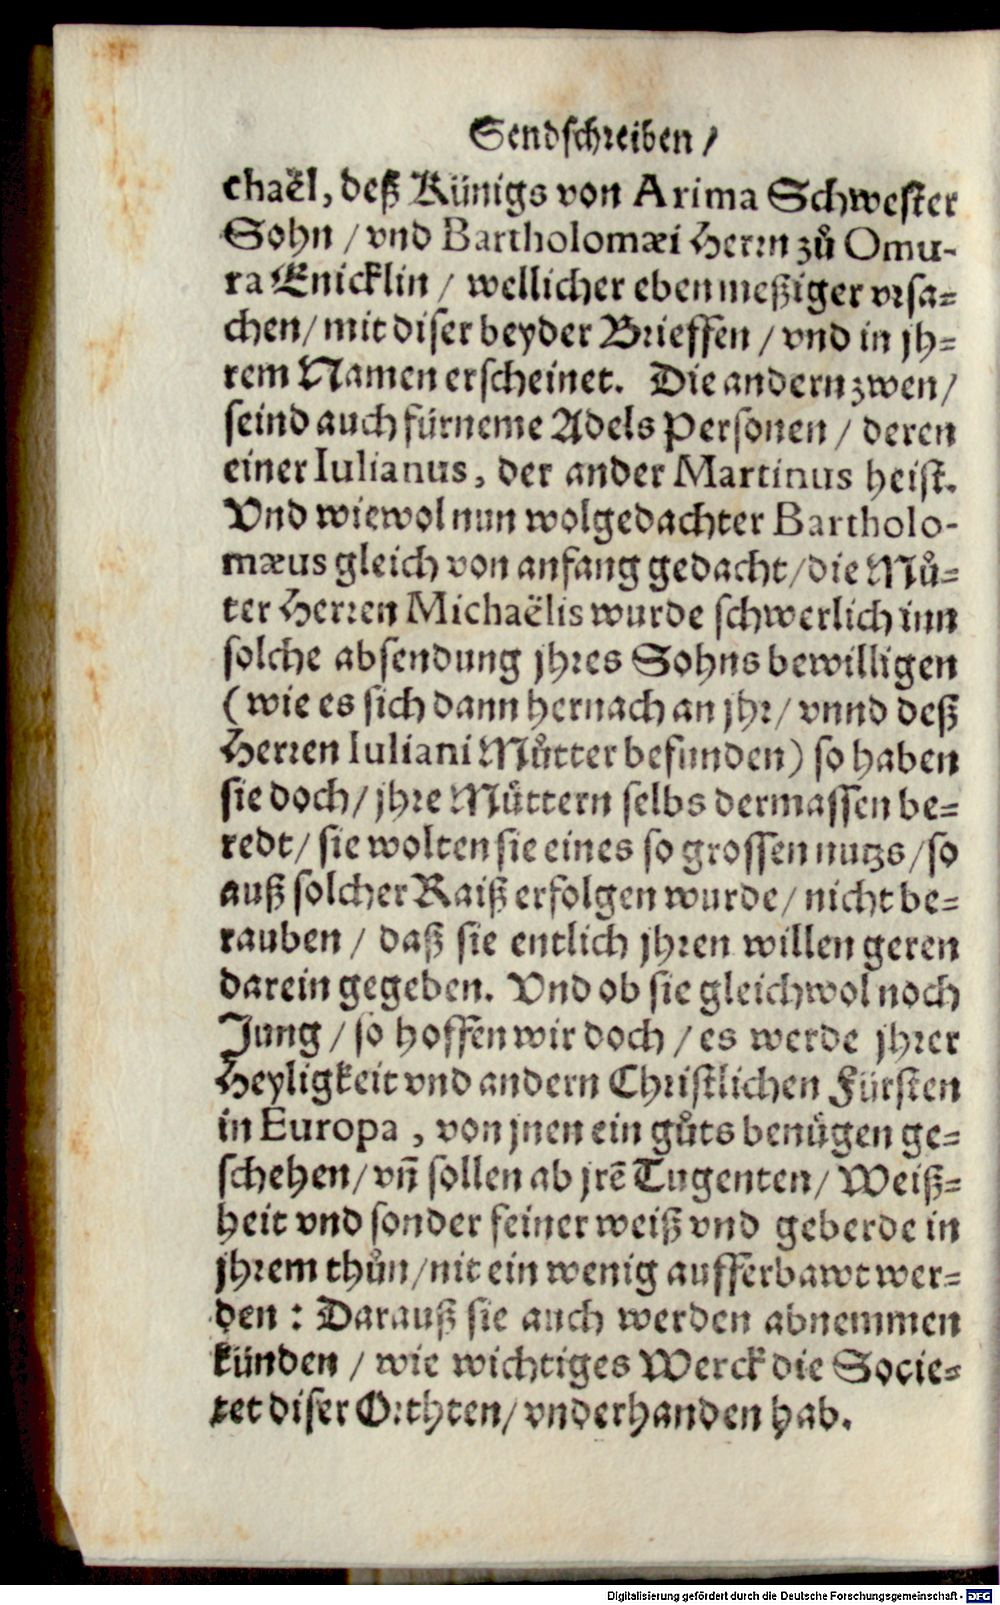 Sendschreiben /
chaël, deß Künigs von Arima Schwester
Sohn / vnd Bartholomæi Herrn zů Omu-
ra Enicklin / wellicher ebenmeßiger vrsa=
chen / mit diser beyder Brieffen / vnd in jh=
rem Namen erscheinet. Die andern zwen /
seind auch fürneme Adels Personen / deren
einer Iulianus, der ander Martinus heist.
Vnd wiewol nun wolgedachter Bartholo-
mæus gleich von anfang gedacht / die Mů=
ter Herren Michaëlis wurde schwerlich inn
solche absendung jhres Sohns bewilligen
( wie es sich dann hernach an jhr / vnnd deß
Herren Iuliani Můtter befunden ) so haben
sie doch / jhre Müttern selbs dermassen be=
redt / sie wolten sie eines so grossen nutzs / so
auß solcher Raiß erfolgen wurde / nicht be=
rauben / daß sie entlich jhren willen geren
darein gegeben. Vnd ob sie gleichwol noch
Jung / so hoffen wir doch / es werde jhrer
Heyligkeit vnd andern Christlichen Fürsten
in Europa , von jnen ein gůts benügen ge=
schehen / vn̄ sollen ab jrē Tugenten / Weiß=
heit vnd sonder feiner weiß vnd geberde in
jhrem thůn / nit ein wenig aufferbawt wer=
den : Darauß sie auch werden abnemmen
künden / wie wichtiges Werck die Socie=
tet diser Orthten / vnderhanden hab.
Digitalisierung gefördert durch die Deutsche Forschungsgemeinschaft - DFG